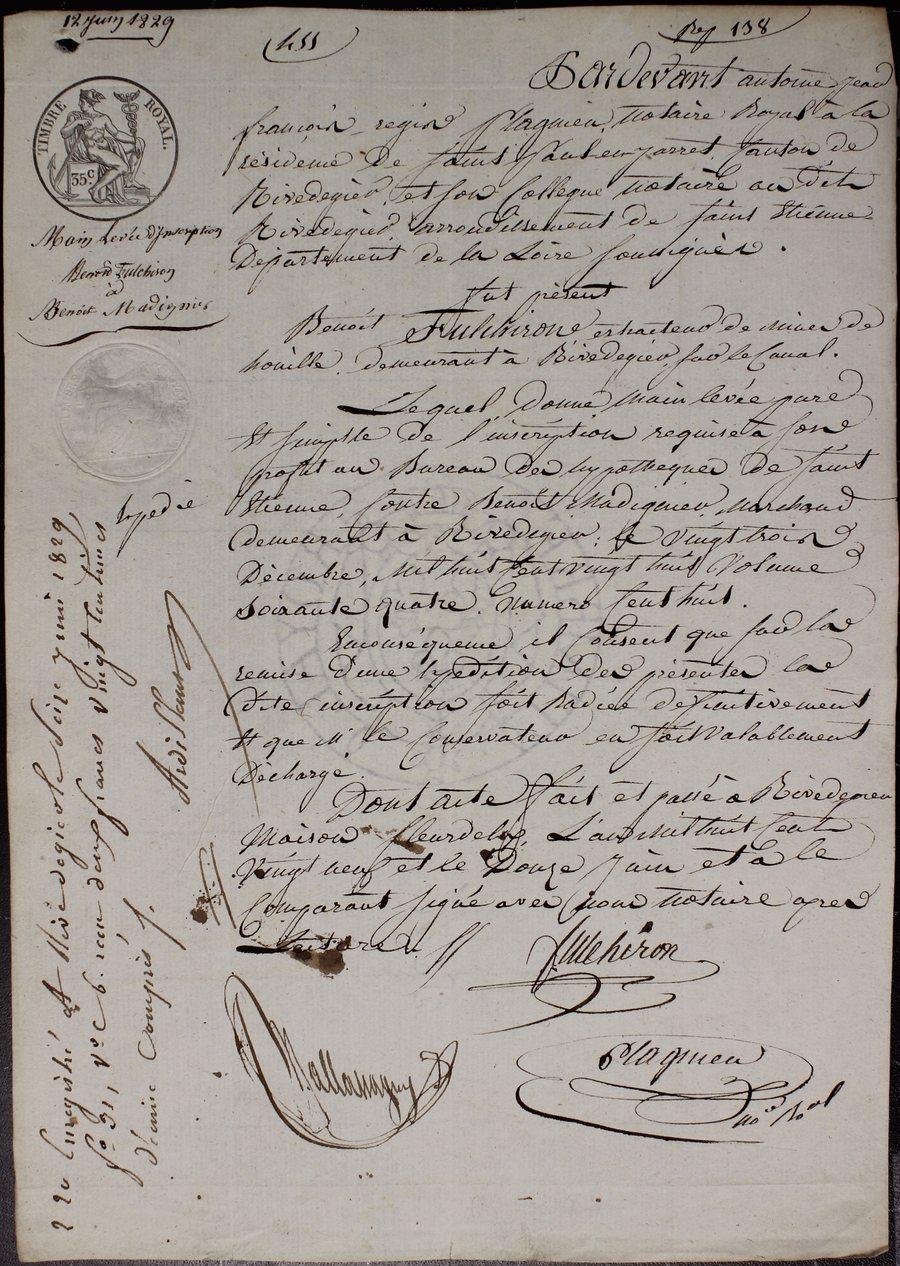 12 Juin 1829
455
Rep 138
TIMBRE ROYAL.
35c.
Main Levée d'Inscription
Benoit Fulchiron
à
Benoit Madignier
Expedié
Pardevant antoine jean
françois regis Plagnieu, Notaire Royal à la
résidence de Saint Paul en jarret, Canton de
Rivedegier, et son Collegue Notaire au dit
Rivedegier arrondissement de Saint Etienne
Département de la Loire soussignés.
fut présent
Benoit Fulchiron extracteur de mines de
houille, demeurant à Rivedegier, sur le Canal.
Lequel donne main levée pure
Et simple de l'inscription requise à son
profit au Bureau des hypotheques de Saint
Etienne, Contre Benoit Madignier, Marchand
demeurant à Rivedegier, le vingt trois
Décembre, Mil huit Cent vingt huit Volume
Soixante quatre, Numero Cent huit.
Enconséquence il Consent que sur la
remise d'une Expédition des présentes la
dite inscription soit Radiée définitivement
Et que Mr le Conservateur en soit valablement
Déchargé.
Dont acte fait et passé à Rivedegier
Maison fleurdelix, L'an Mil huit Cent
Vingt neuf et le Douze Juin et a le
Comparant signé avec nous Notaire apres
Lecture.
fulchiron
Plagnieu
nore Royal
Enregistré à Rivedegier le Seize juin 1829
fo 91, vo c 6. reçu deux francs vingt centimes
décime Compris.